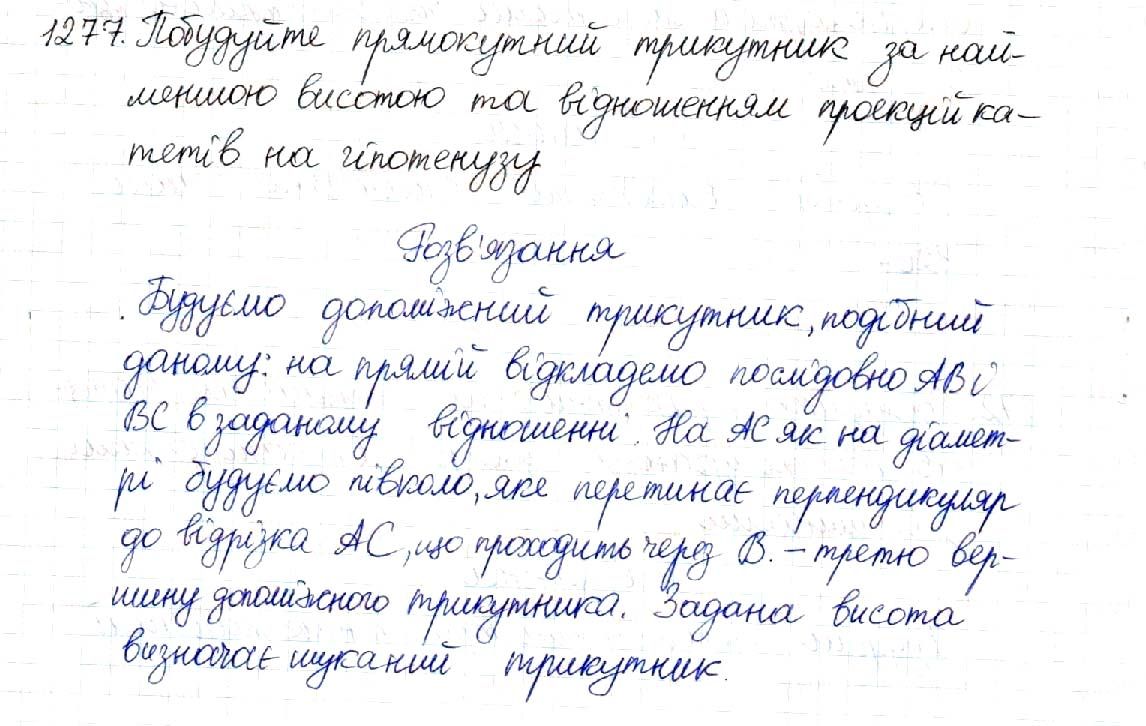 1277. Побудуйте прямокутний трикутник за най-
меншою висотою та відношенням проекцій ка-
тетів на гіпотенузу
Розв'язання
. Будуємо допоміжний трикутник, подібний
даному: на прямій відкладемо послідовно AB і
BC в заданому відношенні. На AC як на діамет-
рі будуємо півколо, яке перетинає перпендикуляр
до відрізка AC, що проходить через B. – третю вер-
шину допоміжного трикутника. Задана висота
визначає шуканий трикутник.